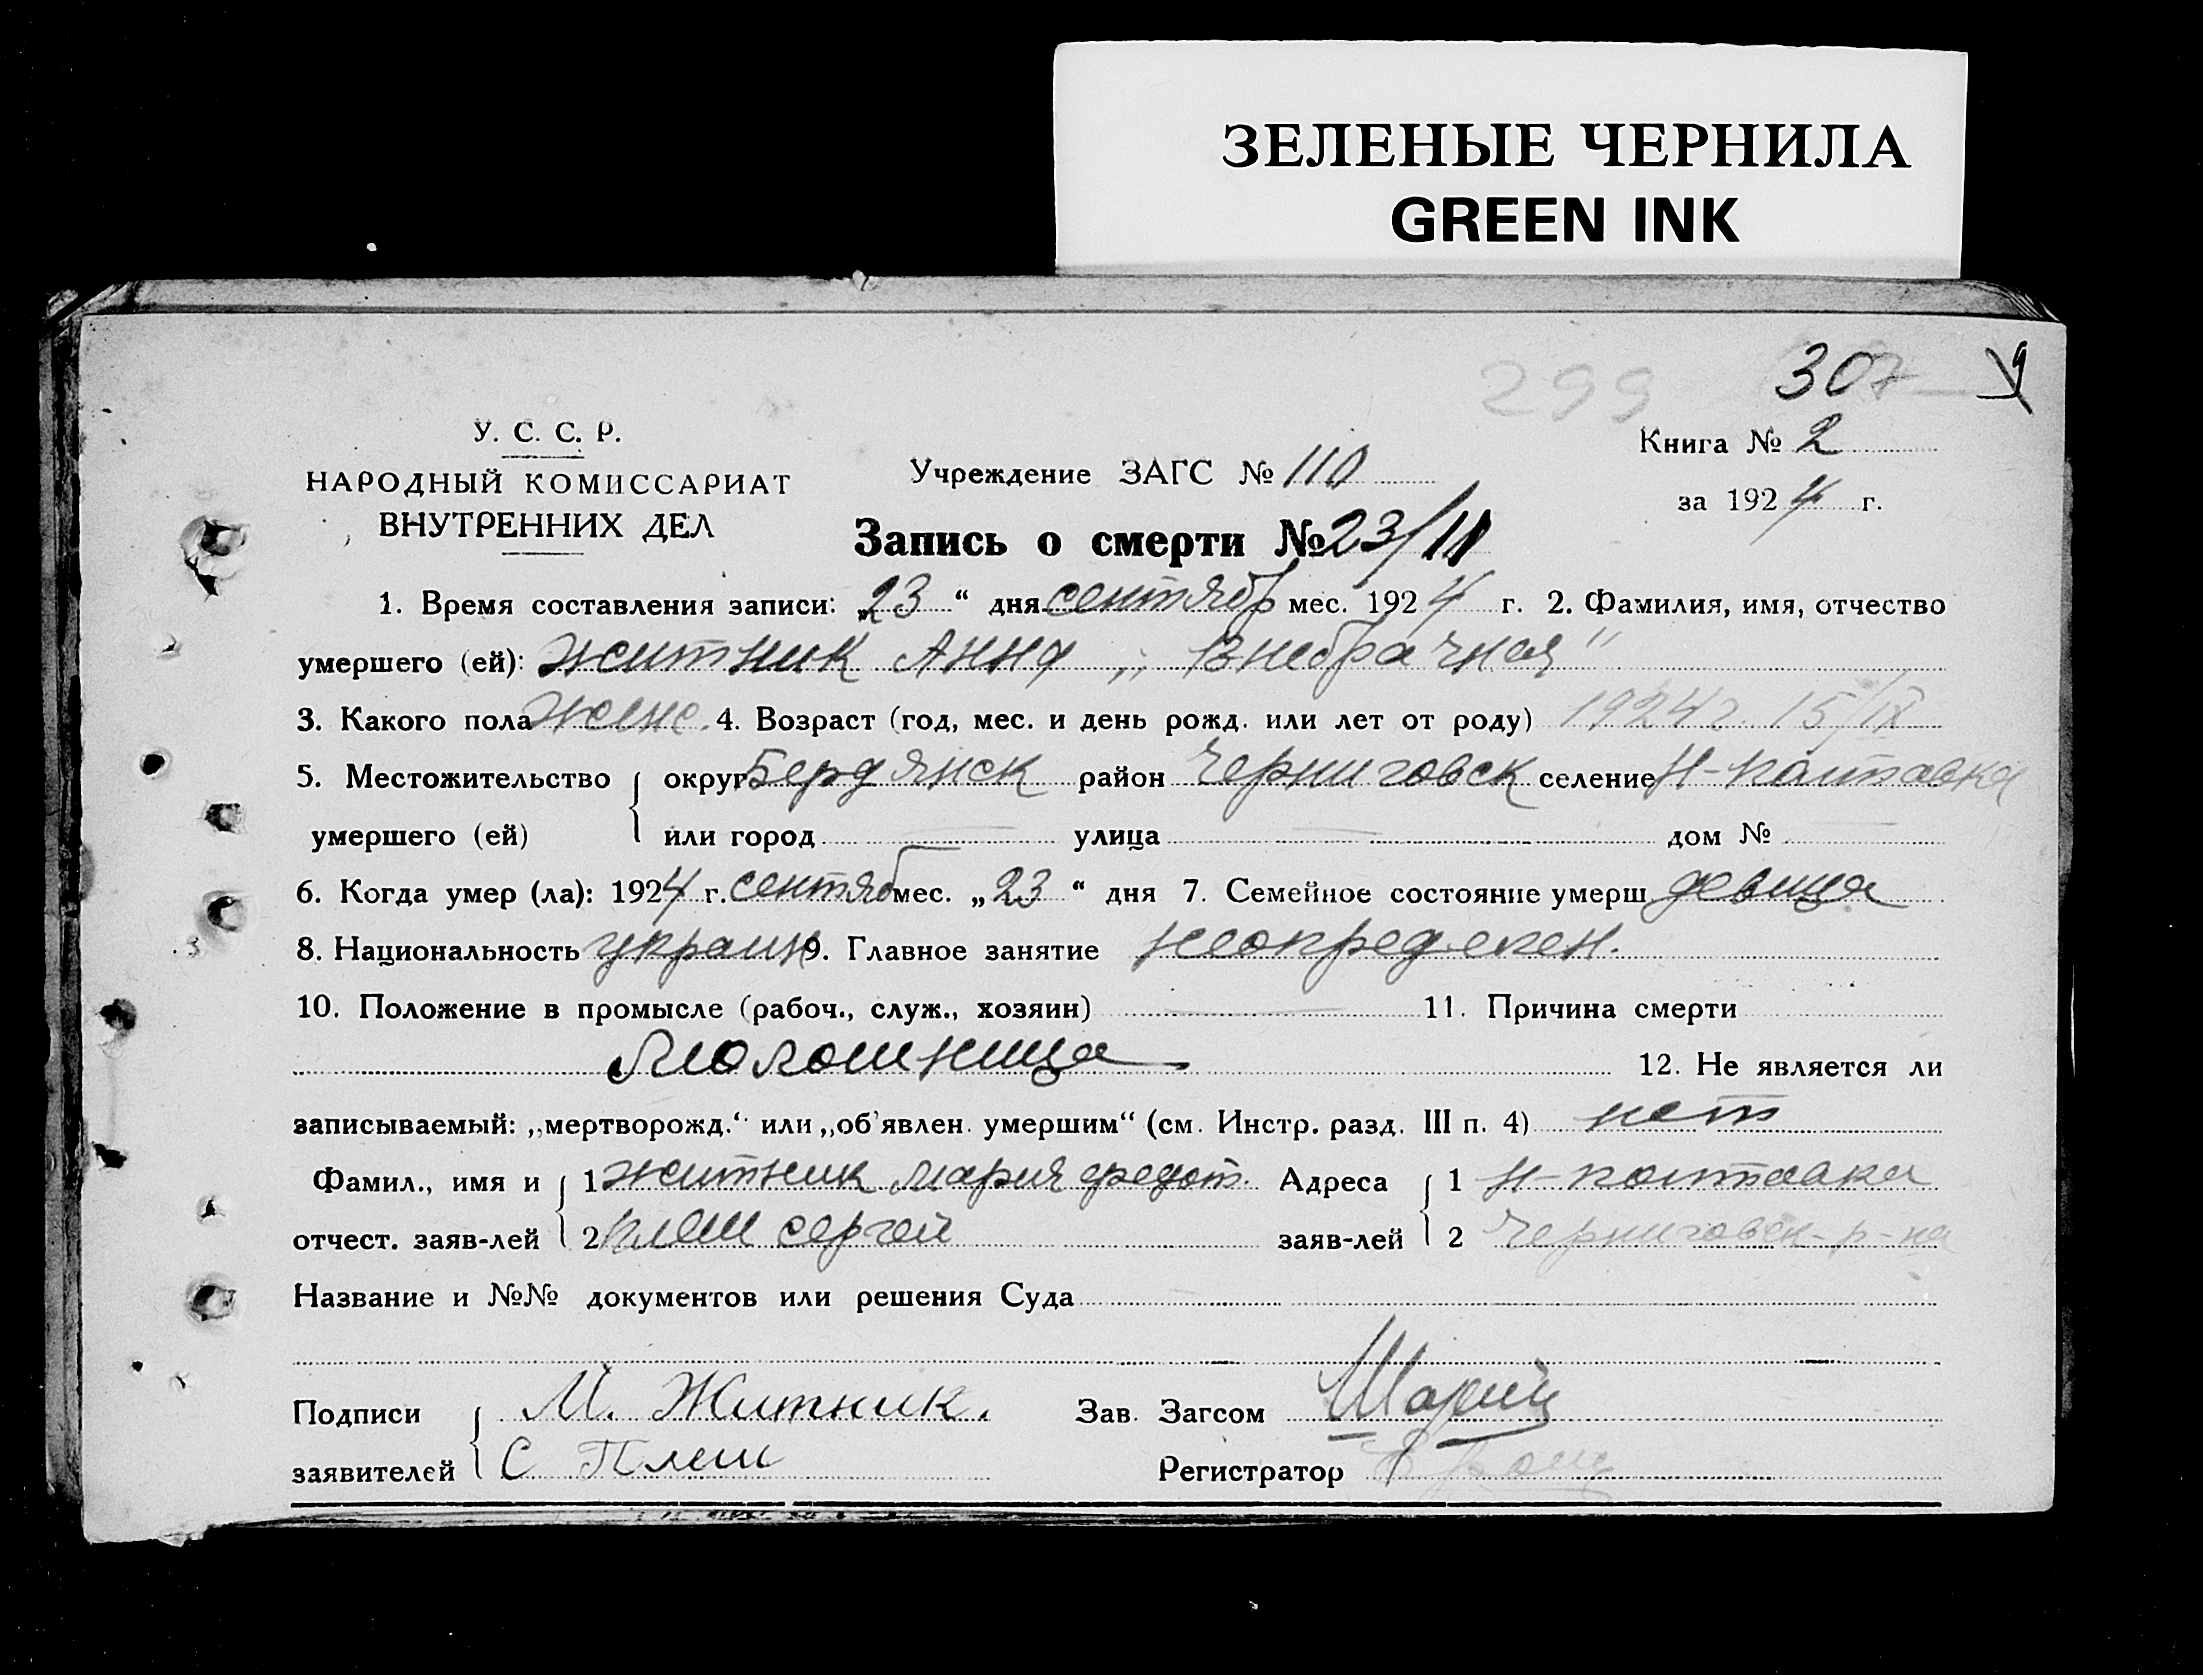 ЗЕЛЕНЫЕ ЧЕРНИЛА
GREEN INK
299 307
У. С. С. Р.
НАРОДНЫЙ КОМИССАРИАТ
ВНУТРЕННИХ ДЕЛ
Учреждение ЗАГС № 110
Книга № 2
за 1924 г.
Запись о смерти № 23/11
1. Время составления записи: „23“ дня сентябр мес. 1924 г. 2. Фамилия, имя, отчество
умершего (ей): Житник Анна „Внебрачная"
3. Какого пола женс. 4. Возраст (год, мес. и день рожд. или лет от роду) 1924 г. 15/IX
5. Местожительство округ Бердянск район Черниговск селение Н-Полтавка
умершего (ей) или город улица дом №
6. Когда умер (ла): 1924 г. сентяб мес. „23“ дня 7. Семейное состояние умерш. девица
8. Национальность украин 9. Главное занятие неопределен.
10. Положение в промысле (рабоч., служ., хозяин) 11. Причина смерти
Молошница 12. Не является ли
записываемый: „мертворожд.“ или „об'явлен. умершим“ (см. Инстр. разд. III п. 4) нет
Фамил., имя и 1 Житник Мария Федот. Адреса 1 Н-Полтавка
отчест. заяв-лей 2 Плеш Сергей заяв-лей 2 Черниговск-р-на
Название и №№ документов или решения Суда
Подписи М. Житник. Зав. Загсом
заявителей С Плеш Регистратор